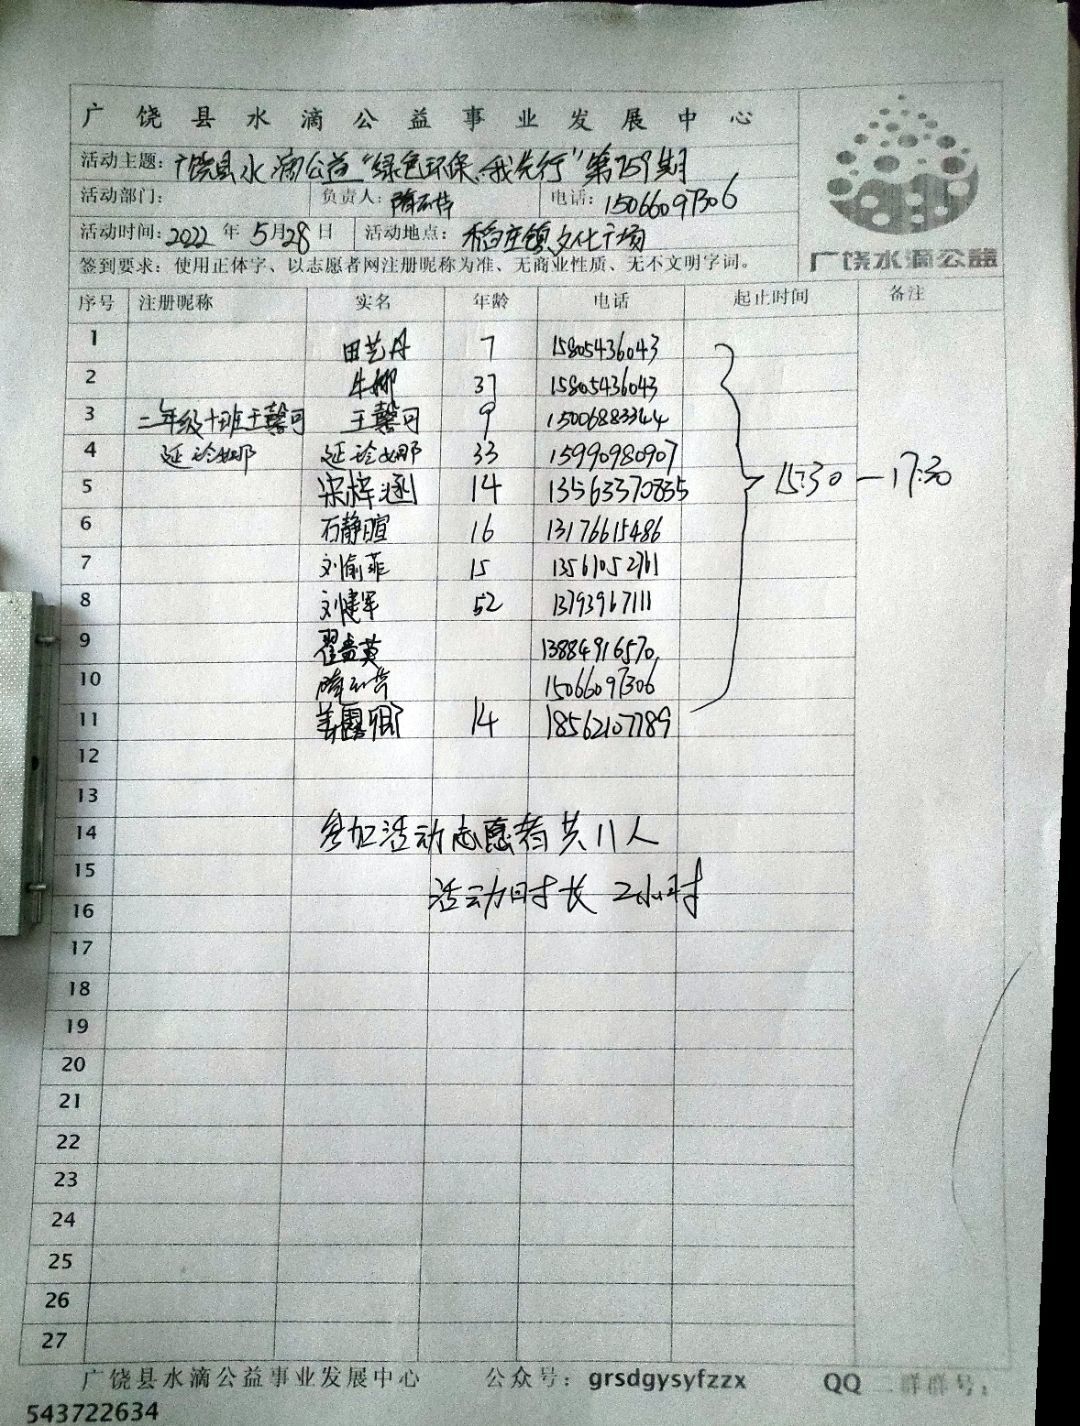 广饶县水滴公益事业发展中心
活动主题：广饶县水滴公益“绿色环保、我先行”第759期
活动部门： 负责人： 电话：15066097306
活动时间：2022年5月28日 活动地点：稻庄镇文化广场
广饶水滴公益
签到要求：使用正体字、以志愿者网注册昵称为准、无商业性质、无不文明字词。
序号 注册昵称 实名 年龄 电话 起止时间 备注
1 田艺丹 7 15805436043
2 牛娜 37 15805436043
3 二年级十班王馨可 王馨可 9 15006883344
4 延论娜 延论娜 33 15990980907
5 宋梓涵 14 13563370835 15:30—17:30
6 石静暄 16 13176615486
7 刘俞菲 15 13561052761
8 刘建军 52 13793967111
9 翟贵英 13884916570
10 15066097306
11 姜露 14 18562107789
12
13
14 参加活动志愿者共11人
15 活动时长2小时
16
17
18
19
20
21
22
23
24
25
26
27
广饶县水滴公益事业发展中心 公众号：grsdgysyfzzx QQ二群群号：
543722634